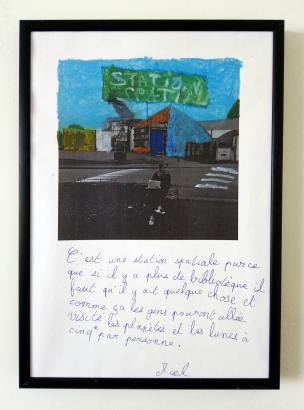 STATION
C'est une station spatiale parce
que si il y a plus de bibliotègue il
faut qu'il y ait quelque chose et
comme ça les gens pourront allée
visité les planètes et les lunes à
cinq par personne.